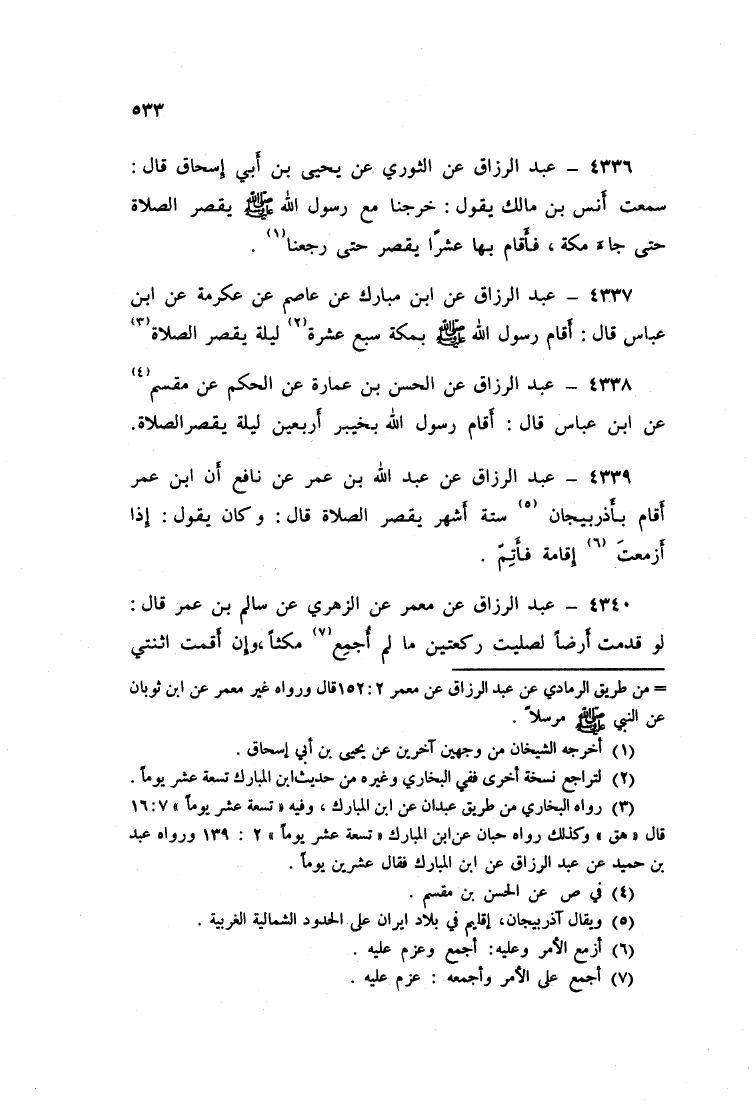 ٥٣٣
٤٣٣٦ – عبد الرزاق عن الثوري عن يحيى بن أبي إسحاق قال :
سمعت أنس بن مالك يقول : خرجنا مع رسول الله ﷺ يقصر الصلاة
حتى جاءَ مكة ، فأَقام بها عشرًا يقصر حتى رجعنا(١) .
٤٣٣٧ – عبد الرزاق عن ابن مبارك عن عاصم عن عكرمة عن ابن
عباس قال : أَقام رسول الله ﷺ بمكة سبع عشرة(٢) ليلة يقصر الصلاة(٣)
٤٣٣٨ – عبد الرزاق عن الحسن بن عمارة عن الحكم عن مقسم(٤)
عن ابن عباس قال : أَقام رسول الله بخيبر أَربعين ليلة يقصر الصلاة.
٤٣٣٩ – عبد الرزاق عن عبد الله بن عمر عن نافع أَن ابن عمر
أَقام بأَذربيجان (٥) ستة أَشهر يقصر الصلاة قال : وكان يقول : إذا
أَزمعتَ (٦) إقامة فأَتِمّ .
٤٣٤٠ – عبد الرزاق عن معمر عن الزهري عن سالم بن عمر قال :
لو قدمت أَرضاً لصليت ركعتين ما لم أُجمِع(٧) مكثاً ،وإن أَقمت اثنتي
= من طريق الرمادي عن عبد الرزاق عن معمر ٢ :١٥٢قال ورواه غير معمر عن ابن ثوبان
عن النبي ﷺ مرسلاً .
(١) أخرجه الشيخان من وجهين آخرين عن يحيى بن أبي إسحاق .
(٢) لتراجع نسخة أخرى ففي البخاري وغيره من حديث ابن المبارك تسعة عشر يوماً .
(٣) رواه البخاري من طريق عبدان عن ابن المبارك ، وفيه « تسعة عشر يوماً » ٧ :١٦
قال « هق » وكذلك رواه حبان عن ابن المبارك « تسعة عشر يوماً » ٢ : ١٣٩ ورواه عبد
بن حميد عن عبد الرزاق عن ابن المبارك فقال عشرين يوماً .
(٤) في ص عن الحسن بن مقسم .
(٥) ويقال آذربيجان، إقليم في بلاد ايران على الحدود الشمالية الغربية .
(٦) أزمع الأمر وعليه : أجمع وعزم عليه .
(٧) أجمع على الأمر وأجمعه : عزم عليه .